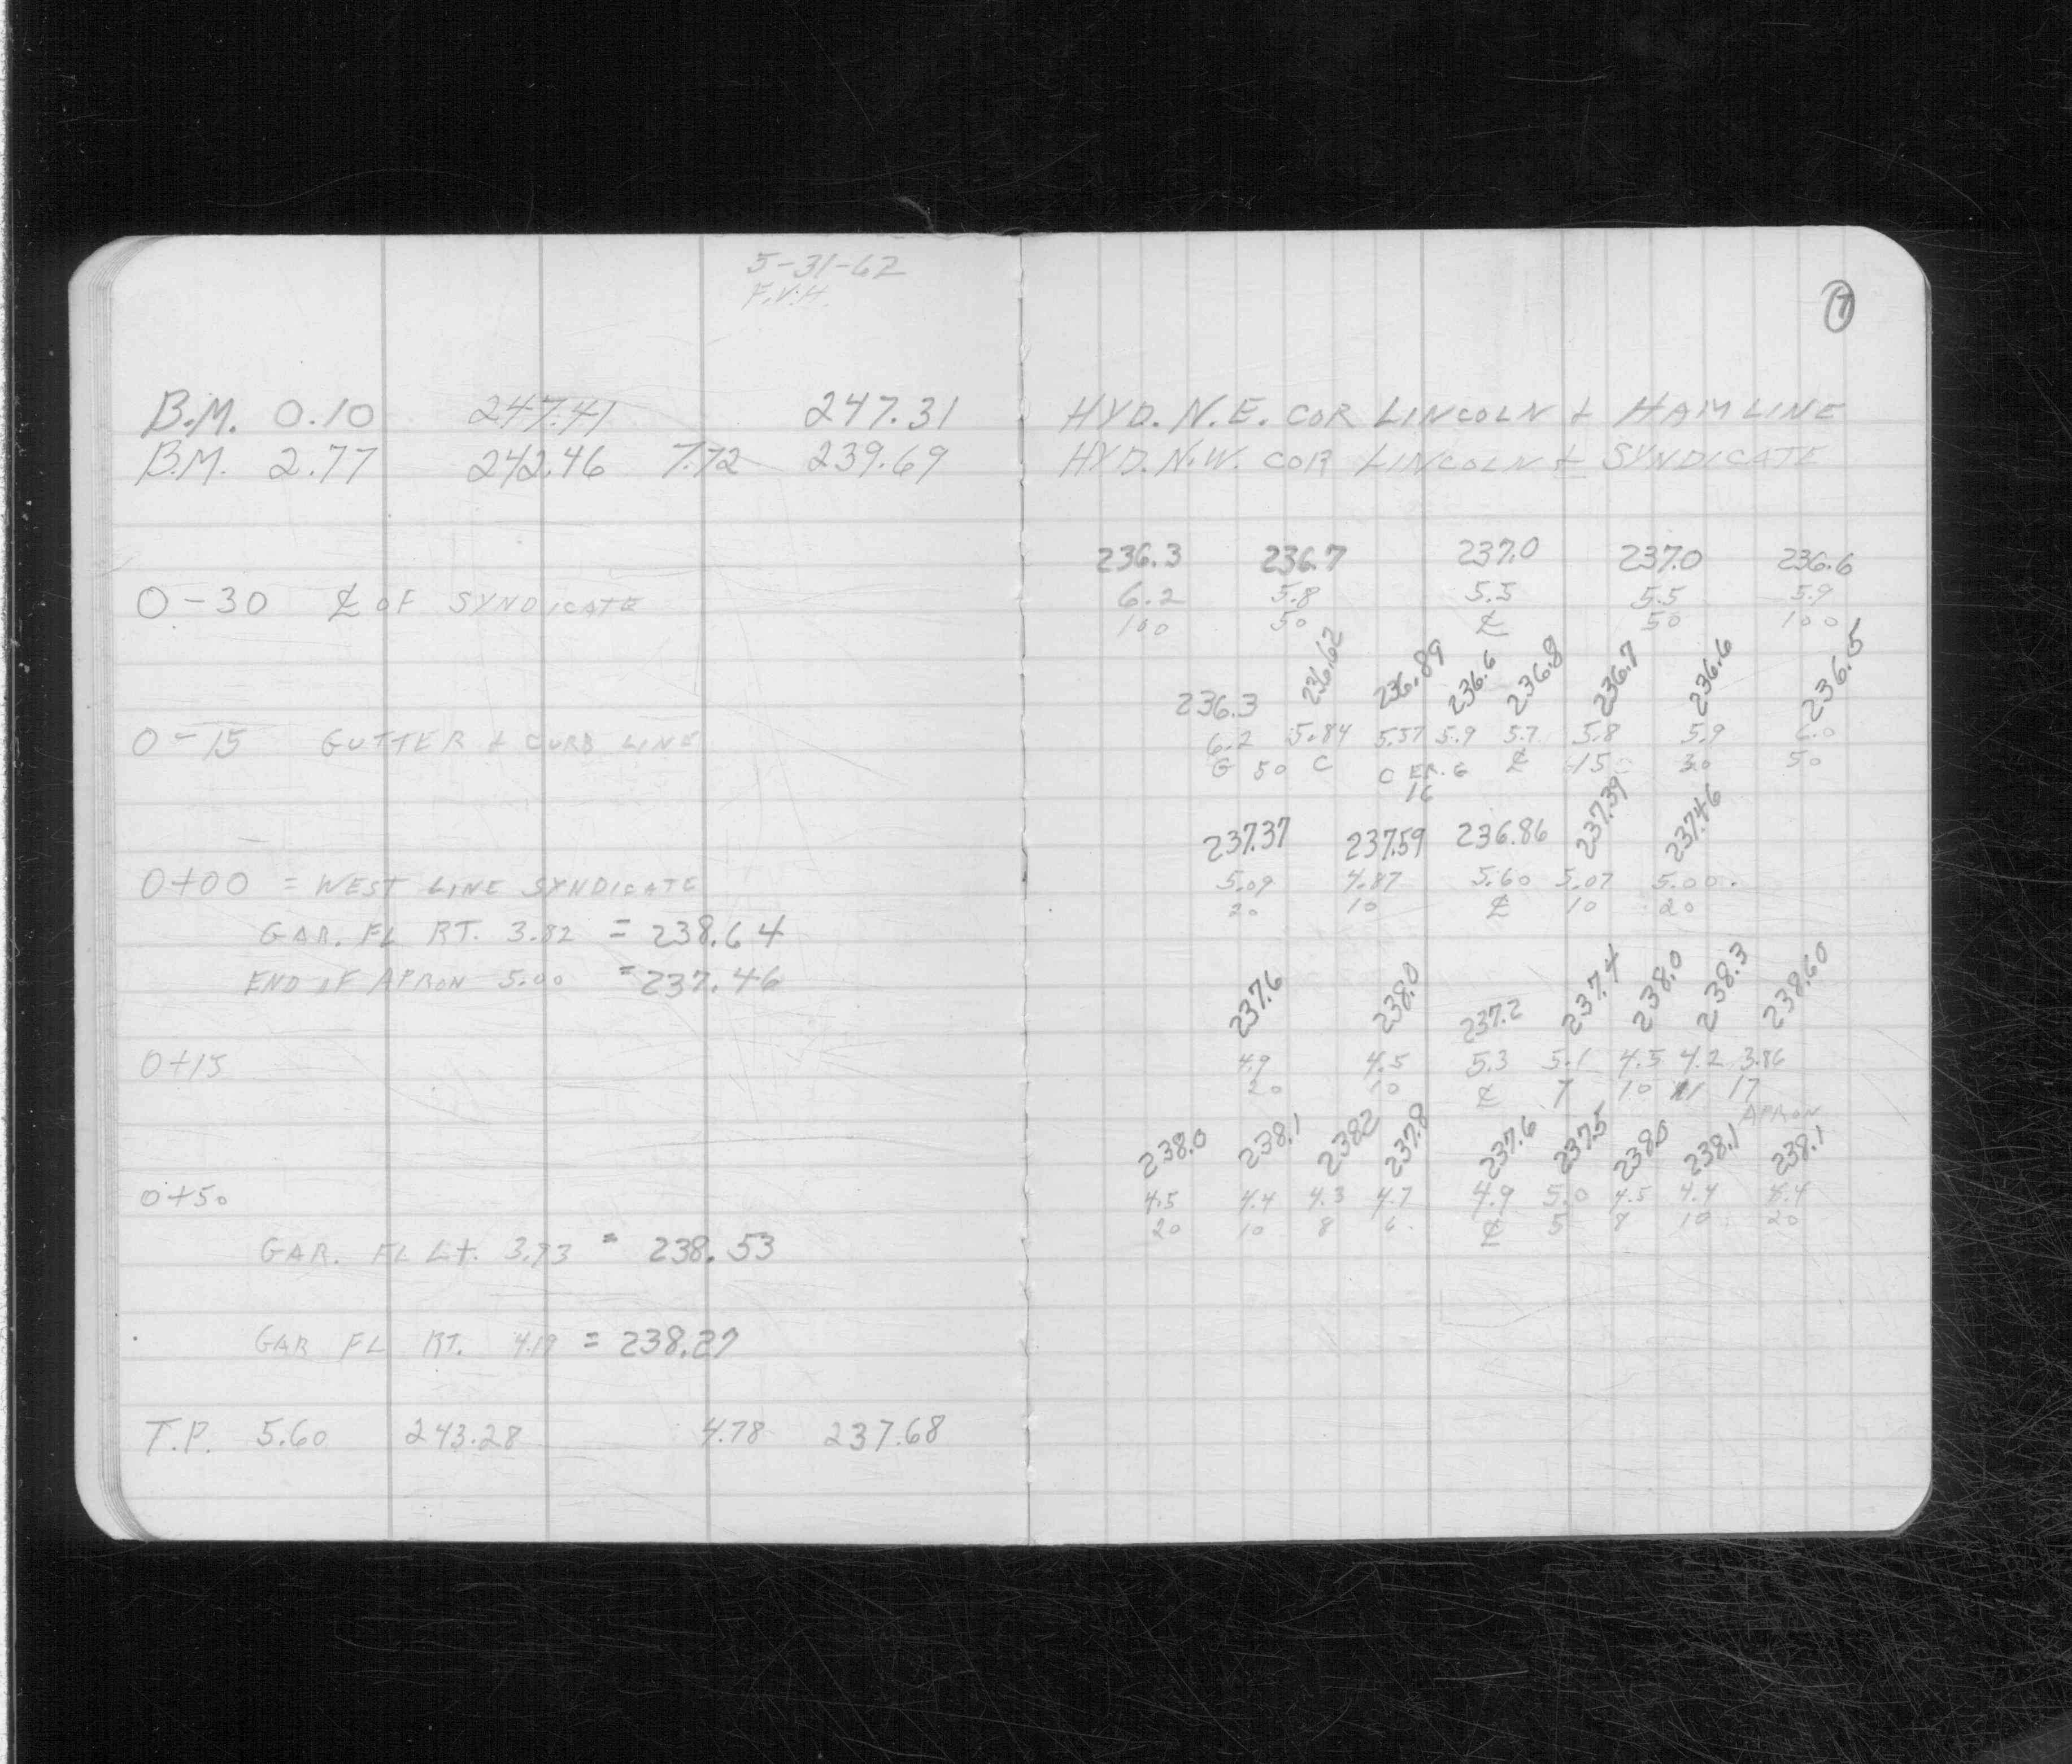 5-31-62
F.V.H.
B.M. 0.10 247.41 247.31
B.M. 2.77 242.46 7.72 239.69
0-30 ℄ OF SYNDICATE
0-15 GUTTER + CURB LINE
0+00 = WEST LINE SYNDICATE
GAR. FL RT. 3.82 = 238.64
END OF APRON 5.00 = 237.46
0+15
0+50
GAR. FL Lt. 3.93 = 238.53
GAR FL RT. 4.19 = 238.27
T.P. 5.60 243.28 4.78 237.68
HYD. N.E. COR LINCOLN + HAMLINE
HYD. N.W. COR LINCOLN + SYNDICATE
236.3 236.7 237.0 237.0 236.6
6.2 5.8 5.5 5.5 5.9
100 50 ℄ 50 100
236.3 236.62 236.89 236.6 236.8 236.7 236.6 236.5
6.2 5.84 5.57 5.9 5.7 5.8 5.9 6.0
G 50 C C ER. G ℄ 15 30 50
16
237.37 237.59 236.86 237.39 237.46
5.09 4.87 5.60 5.07 5.00
20 10 ℄ 10 20
237.6 238.0 237.2 237.4 238.0 238.3 238.60
4.9 4.5 5.3 5.1 4.5 4.2 3.86
20 10 ℄ 7 10 11 17
APRON
238.0 238.1 238.2 237.8 237.6 237.5 238.0 238.1 238.1
4.5 4.4 4.3 4.7 4.9 5.0 4.5 4.4 4.4
20 10 8 6 ℄ 5 8 10 20